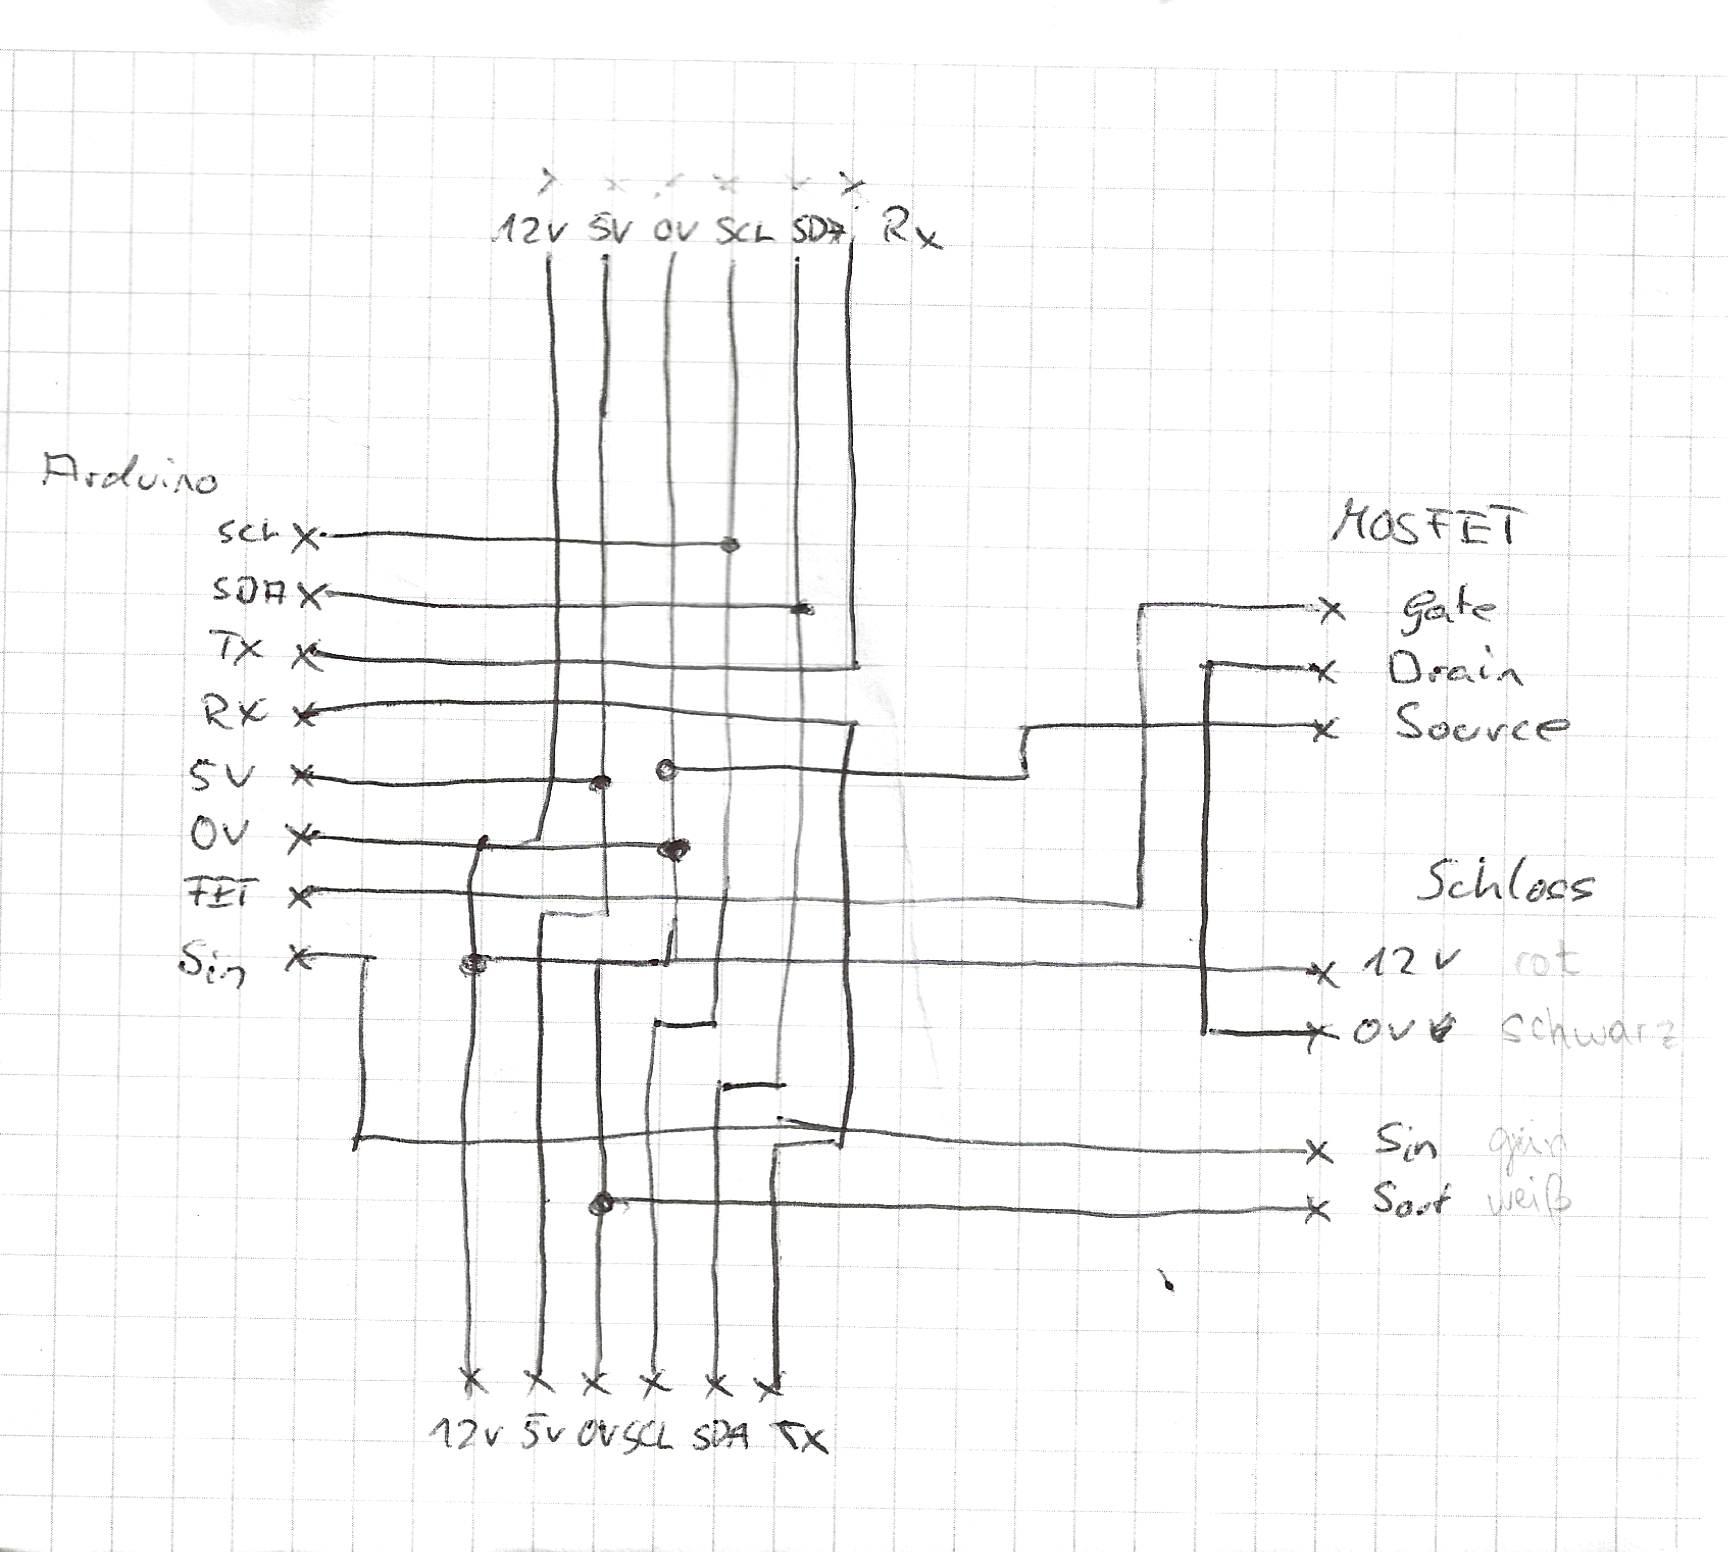 12V 5V 0V SCL SDA Rx
Arduino
SCL
SDA
TX
RX
5V
0V
FET
Sin
MOSFET
Gate
Drain
Source
Schloss
12V rot
0V schwarz
Sin grün
Sout weiß
12V 5V 0V SCL SDA TX